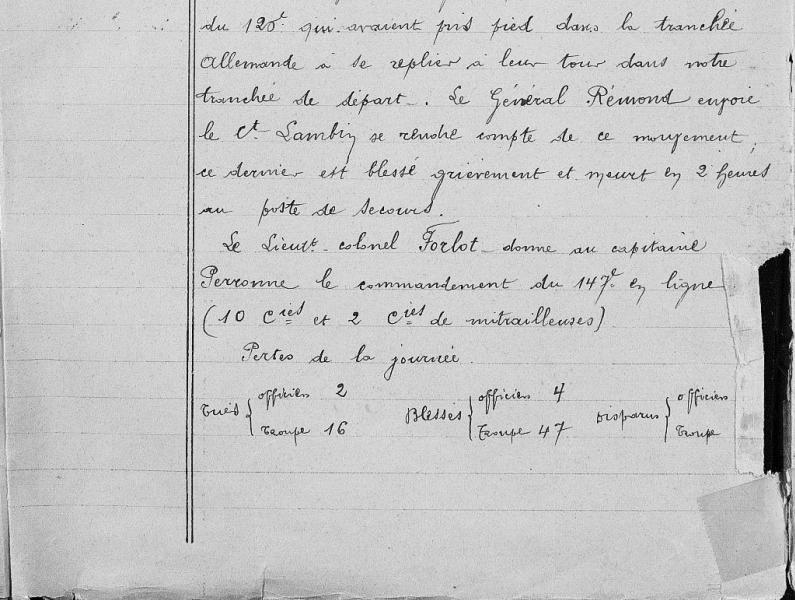 du 120e qui avaient pris pied dans la tranchée
Allemande à se replier à leur tour dans notre
tranchée de départ. Le Général Rémond envoie
le Ct Lambin se rendre compte de ce mouvement,
ce dernier est blessé grièvement et meurt en 2 heures
au poste de secours.
Le Lieutt-colonel Forlot donne au capitaine
Perronne le commandement du 147e en ligne
(10 Cies et 2 Cies de mitrailleuses)
Pertes de la journée.
Tués { officiers 2 Blessés { officiers 4 Disparus { officiers
Troupe 16 Troupe 47 Troupe